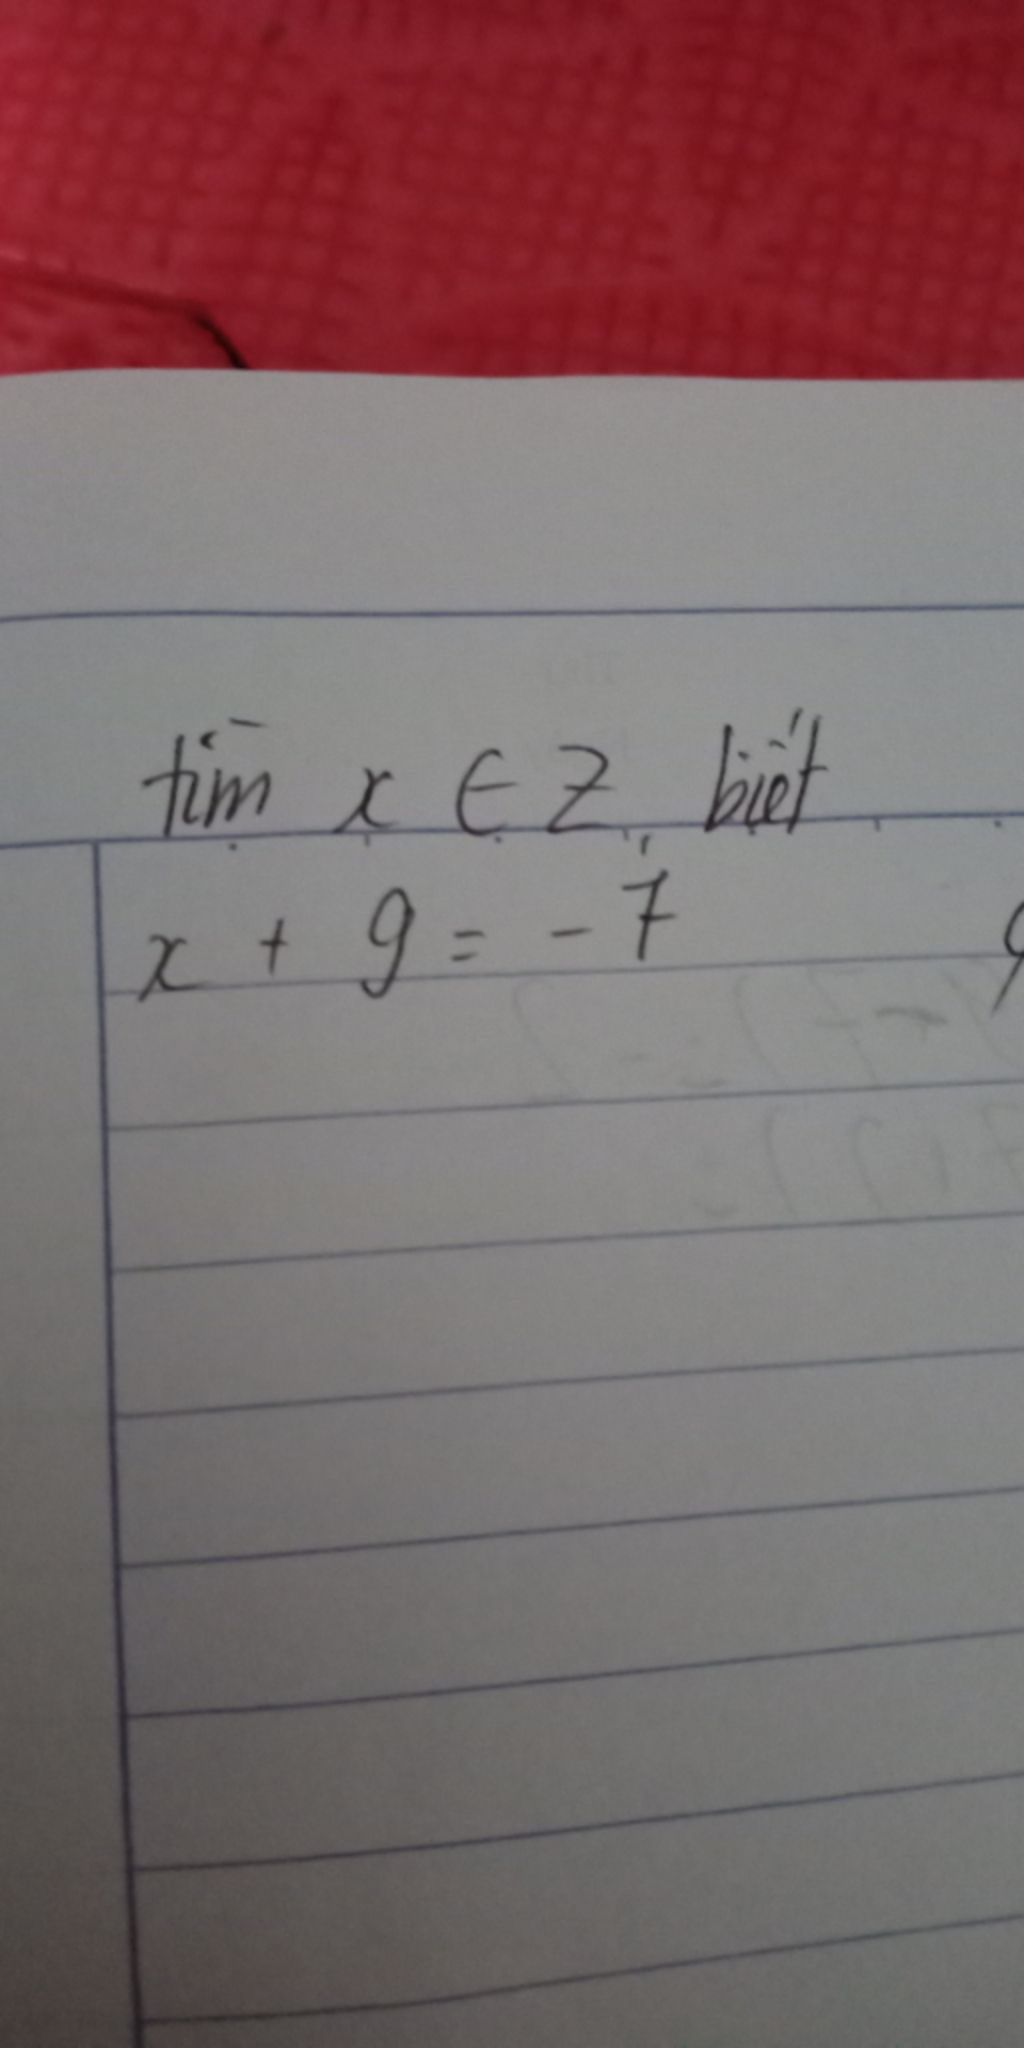 tìm x ∈ Z, biết
x + 9 = - 7